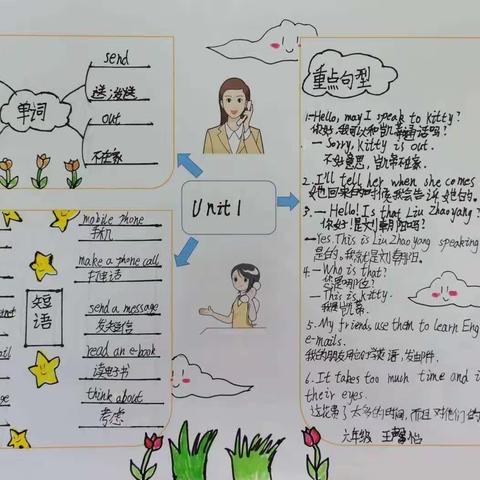 send
送;发送
单词
out
不在家
Unit 1
mobile phone
手机
make a phone call
打电话
短语
send a message
发短信
read an e-book
读电子书
think about
考虑
重点句型
1.—Hello, may I speak to kitty?
你好,我可以和凯蒂通话吗?
— Sorry, kitty is out.
不好意思,凯蒂不在家.
2. I'll tell her when she comes
3. — Hello! Is that Liu Zhaoyang?
你好!是刘朝阳吗?
—Yes. This is Liu Zhaoyang speaking
是的。我就是刘朝阳.
4. — Who is that?
您是哪位?
— This is kitty.
我是凯蒂.
5. My friends use them to learn Eng
e-mails.
6. It takes too much time and i
their eyes.
这花费了太多的时间,而且对他们的
六年级 王馨怡